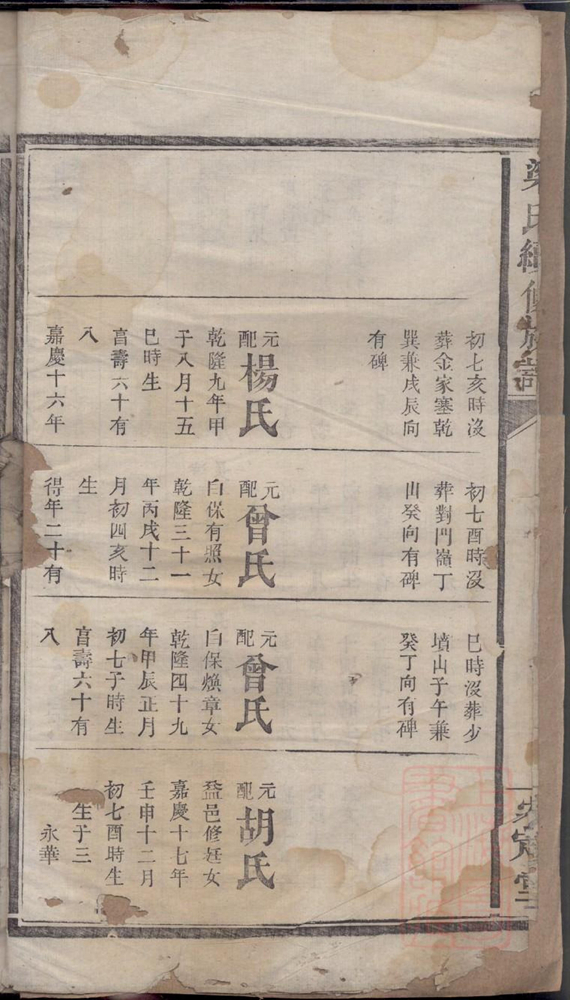 梁氏續修族譜
初七亥時沒
葬金家塞乾
巽兼戌辰向
有碑
元配楊氏
乾隆九年甲
子八月十五
巳時生
享壽六十有
八
嘉慶十六年
初七酉時沒
葬對門嶺丁
山癸向有碑
元配曾氏
白保有照女
乾隆三十一
年丙戌十二
月初四亥時
生
得年二十有
巳時沒葬少
墳山子午兼
癸丁向有碑
元配曾氏
白保煥章女
乾隆四十九
年甲辰正月
初七子時生
享壽六十有
八
元配胡氏
益邑修廷女
嘉慶十七年
壬申十二月
初七酉時生
生子三
永華